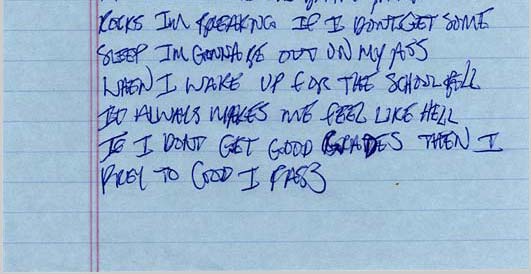 ROCKS IM FREAKING IF I DONT GET SOME
SLEEP IM GONNA BE OUT ON MY ASS
WHEN I WAKE UP FOR THE SCHOOL BELL
IT ALWAYS MAKES ME FEEL LIKE HELL
IF I DONT GET GOOD GRADES THEN I
PREY TO GOD I PASS